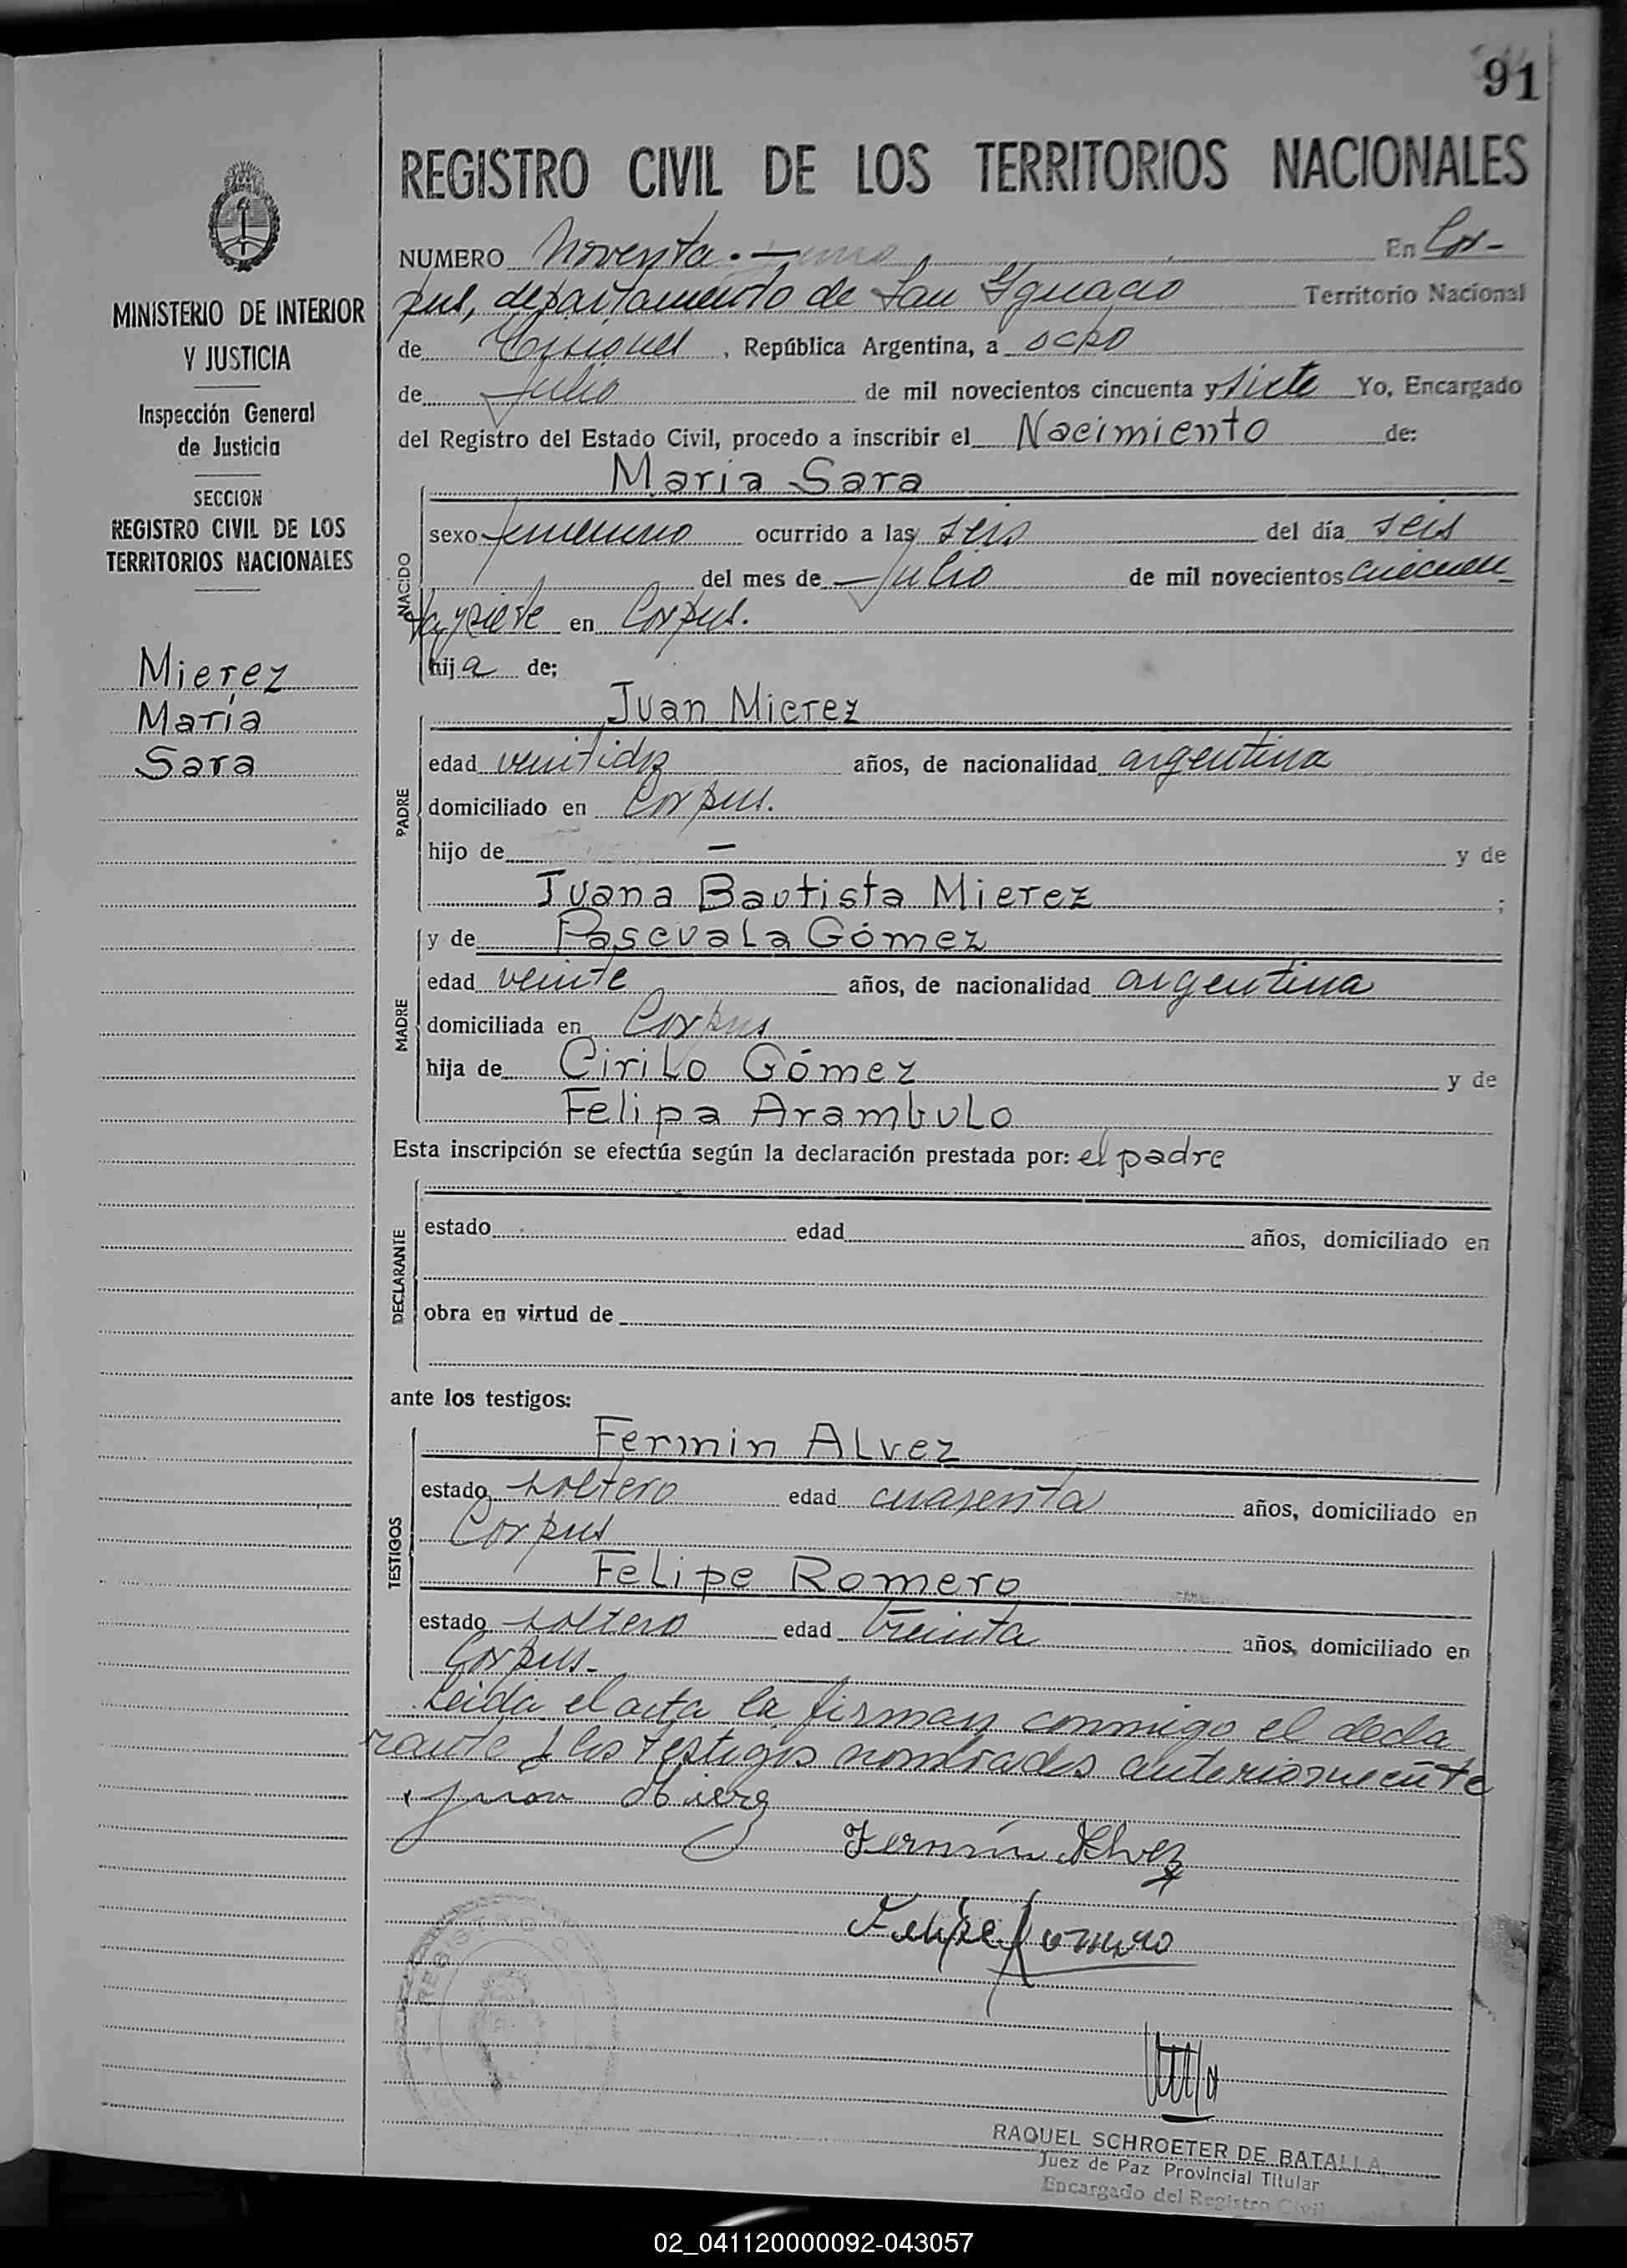 91
REGISTRO CIVIL DE LOS TERRITORIOS NACIONALES
NUMERO Noventa.— uno En Cor-
pus, departamento de San Ygnacio Territorio Nacional
de Misiones, República Argentina, a ocho
de Julio de mil novecientos cincuenta y siete Yo, Encargado
del Registro del Estado Civil, procedo a inscribir el Nacimiento de:
MINISTERIO DE INTERIOR
Y JUSTICIA
Inspección General
de Justicia
SECCION
REGISTRO CIVIL DE LOS
TERRITORIOS NACIONALES
Mierez
María
Sara
NACIDO
Maria Sara
sexo femenino ocurrido a las seis del día seis
del mes de Julio de mil novecientos cincuen
ta y siete en Corpus.
hija de;
PADRE
Juan Mierez
edad veintidos años, de nacionalidad argentina
domiciliado en Corpus.
hijo de — y de
Juana Bautista Mierez ;
MADRE
y de Pascuala Gómez
edad veinte años, de nacionalidad argentina
domiciliada en Corpus
hija de Cirilo Gómez y de
Felipa Arambulo
Esta inscripción se efectúa según la declaración prestada por: el padre
DECLARANTE
estado edad años, domiciliado en
obra en virtud de
ante los testigos:
TESTIGOS
Fermin Alvez
estado soltero edad cuarenta años, domiciliado en
Corpus
Felipe Romero
estado soltero edad treinta años, domiciliado en
Corpus.-
Leida el acta la firman conmigo el decla
rante y los testigos nombrados anteriormente
Juan Mierez
Fermín Alvez
Felipe Romero
REGISTRO
RAQUEL SCHROETER DE BATALLA
Juez de Paz Provincial Titular
Encargado del Registro Civil
02_041120000092-043057